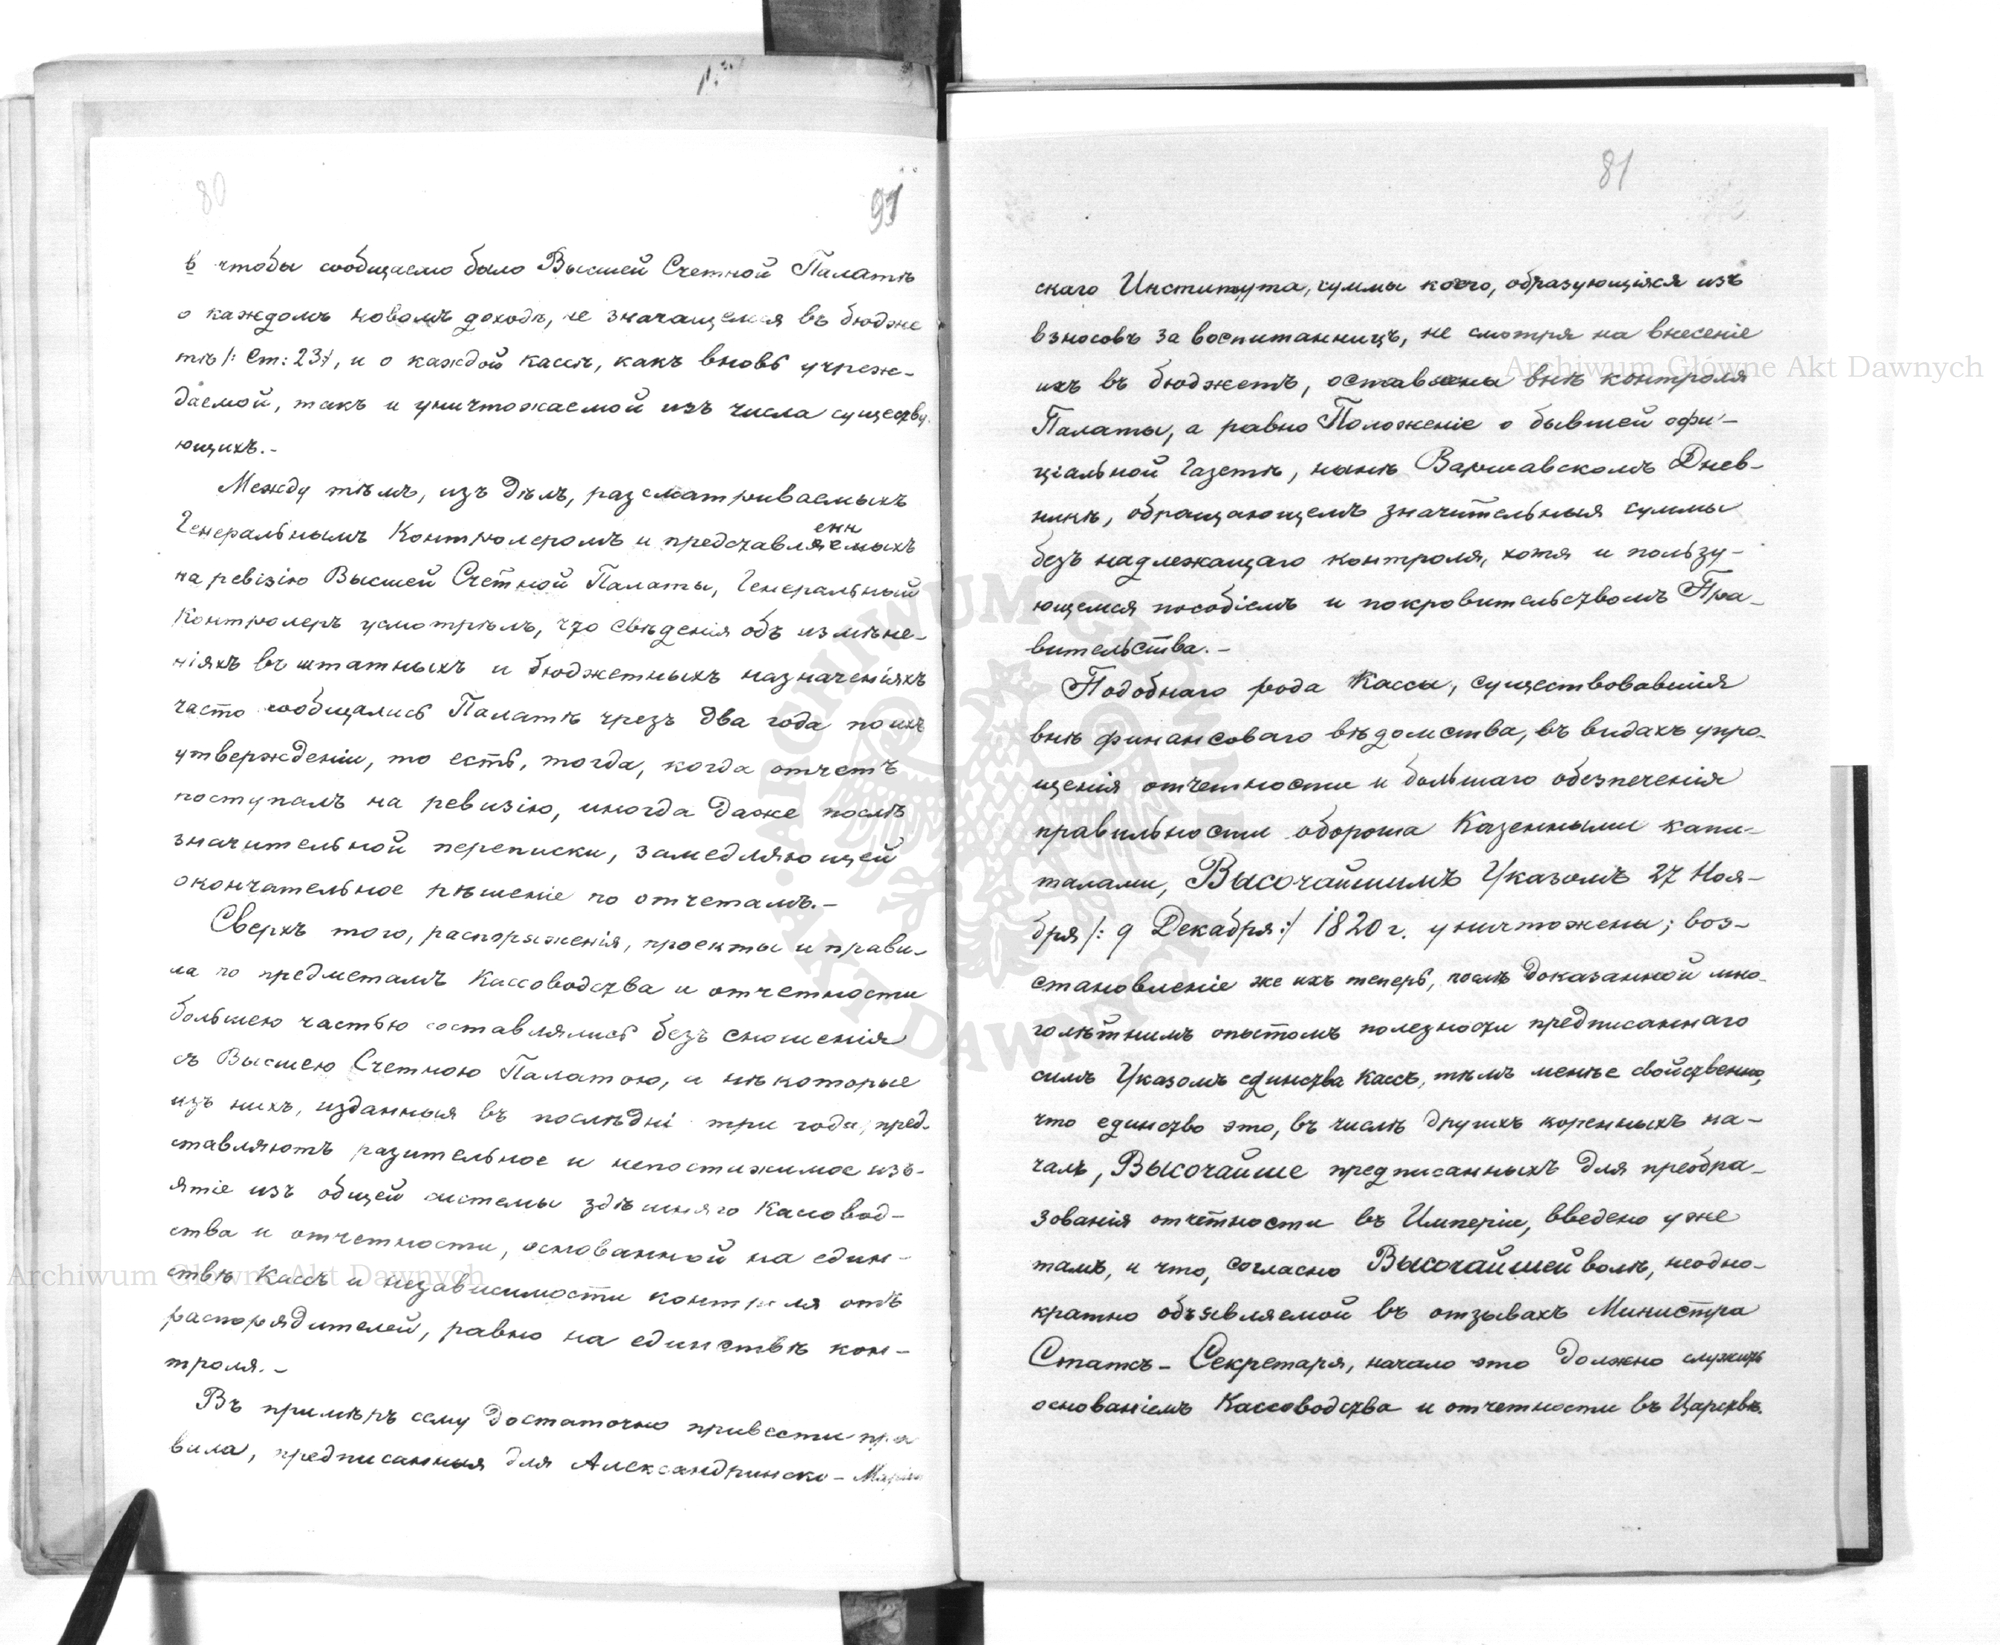 80
91
в чтобы сообщаемо было Высшей Счетной Палатѣ
о каждомъ новомъ доходѣ, не значащемся въ бюдже
тѣ /: Ст: 23 :/, и о каждой кассѣ, какъ вновь учреж-
даемой, такъ и уничтожаемой изъ числа существу-
ющихъ.-
Между тѣмъ, изъ дѣлъ, разсматриваемыхъ
Генеральнымъ Контролеромъ и представляемыхъ
енн
на ревизію Высшей Счетной Палаты, Генеральный
Контролеръ усмотрѣлъ, что свѣденія объ измѣне-
ніяхъ въ штатныхъ и бюджетныхъ назначеніяхъ
часто сообщались Палатѣ чрезъ два года по ихъ
утвержденіи, то есть, тогда, когда отчетъ
поступалъ на ревизію, иногда даже послѣ
значительной переписки, замедляющей
окончательное рѣшеніе по отчетамъ.-
Сверхъ того, распоряженія, проекты и прави-
ла по предметамъ Кассоводства и отчетности
большею частью составлялись безъ сношенія
съ Высшею Счетною Палатою, и нѣкоторые
изъ нихъ, изданныя въ послѣдні три года, пред-
ставляютъ разительное и непостижимое изъ-
ятіе изъ общей системы здѣшняго Кассовод-
ства и отчетности, основанной на един-
ствѣ Кассъ и независимости контроля отъ
распорядителей, равно на единствѣ кон-
троля.-
Въ примѣръ сему достаточно привести пра
вила, предписанныя для Александринско-Маріин
81
скаго Института, суммы коего, образующіяся изъ
взносовъ за воспитанницъ, не смотря на внесеніе
ихъ въ бюджетъ, оставлены внѣ контроля
Палаты, а равно Положеніе о бывшей офи-
ціальной Газетѣ, нынѣ Варшавскомъ Днев-
никѣ, обращающемъ значительныя суммы
безъ надлежащаго контроля, хотя и пользу-
ющемся пособіемъ и покровительствомъ Пра-
вительства.-
Подобнаго рода Кассы, существовавшія
внѣ финансоваго вѣдомства, въ видахъ упро-
щенія отчетности и большаго обезпеченія
правильности оборота Казенными капи-
талами, Высочайшимъ Указомъ 27 Ноя-
бря /: 9 Декабря :/ 1820 г. уничтожены; воз-
становленіе же ихъ теперь, послѣ доказанной мно-
голѣтнимъ опытомъ полезности предписаннаго
симъ Указомъ единства Кассъ, тѣмъ менѣе свойственно,
что единство это, въ числѣ другихъ коренныхъ на-
чалъ, Высочайше предписанныхъ для преобра-
зованія отчетности въ Имперіи, введено уже
тамъ, и что, согласно Высочайшей волѣ, неодно-
кратно объявляемой въ отзывахъ Министра
Статсъ-Секретаря, начало это должно служить
основаніемъ Кассоводства и отчетности въ Царствѣ.
Archiwum Główne Akt Dawnych
Archiwum Główne Akt Dawnych
ARCHIWUM GŁÓWNE AKT DAWNYCH